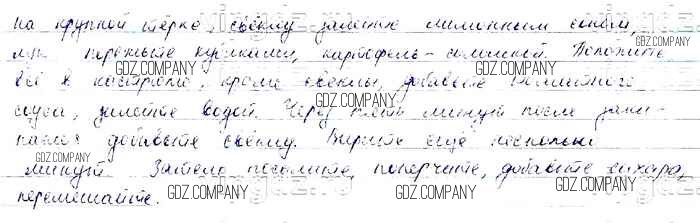 на крупной тёрке, свёклу залейте лимонным соком,
лук порежьте кубиками, картофель - соломкой. Положите
всё в кастрюлю, кроме свеклы, добавьте томатного
соуса, залейте водой. Через пять минут после заки-
пания добавьте свёклу. Варить ещё несколько
минут. Затем посолите, поперчите, добавьте сахара,
перемешайте.
GDZ.COMPANY
GDZ.COMPANY
GDZ.COMPANY
GDZ.COMPANY
GDZ.COMPANY
GDZ.COMPANY
GDZ.COMPANY
GDZ.COMPANY
GDZ.COMPANY